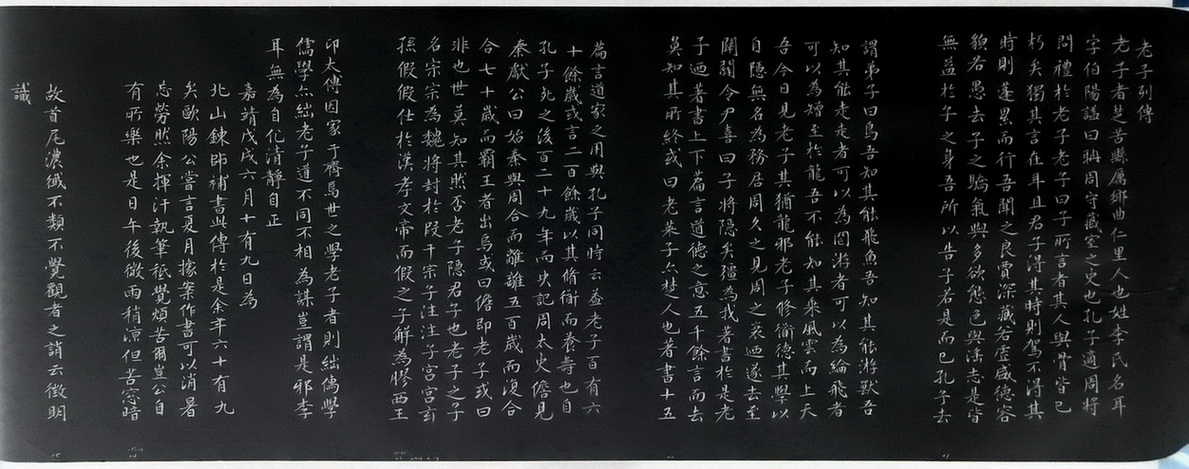 老子列傳
老子者是苦縣厲鄉曲仁里人也姓李氏名耳
字伯陽謚曰聃周守藏室之史也孔子適周將
問禮於老子老子曰子所言者其人與骨皆已
朽矣獨其言在耳且君子得其時則駕不得其
時則蓬累而行吾聞之良賈深藏若虛盛德容
貌若愚去子之驕氣與多欲態色與淫志是皆
無益於子之身吾所以告子若是而已孔子去
謂弟子曰鳥吾知其能飛魚吾知其能游獸吾
知其能走走者可以為罔游者可以為綸飛者
可以為矰至於龍吾不能知其乘風雲而上天
吾今日見老子其猶龍邪老子修衜德其學以
自隱無名為務居周久之見周之衰迺遂去至
關關令尹喜曰子將隱矣彊為我著書於是老
子迺著書上下篇言道德之意五千餘言而去
莫知其所終或曰老萊子亦楚人也著書十五
篇言道家之用與孔子同時云蓋老子百有六
十餘歲或言二百餘歲以其脩衜而養壽也自
孔子死之後百二十九年而史記周太史儋見
秦獻公曰始秦與周合而離離五百歲而復合
合七十歲而霸王者出焉或曰儋即老子或曰
非也世莫知其然否老子隱君子也老子之子
名宗宗為魏將封於段干宗子注注子宮宮玄
孫假假仕於漢孝文帝而假之子解為膠西王
卬太傅因家于齊焉世之學老子者則絀儒學
儒學亦絀老子道不同不相為謀豈謂是邪李
耳無為自化清靜自正
嘉靖戊戌六月十有九日為
北山鍊師補書此傳於是余年六十有九
矣歐陽公嘗言夏月據案作書可以消暑
忘勞然余揮汗執筆秪覺煩苦爾豈公自
有所樂也是日午後微雨稍涼但苦窓暗
故首尾濃纖不類不覺觀者之誚云徵明
識